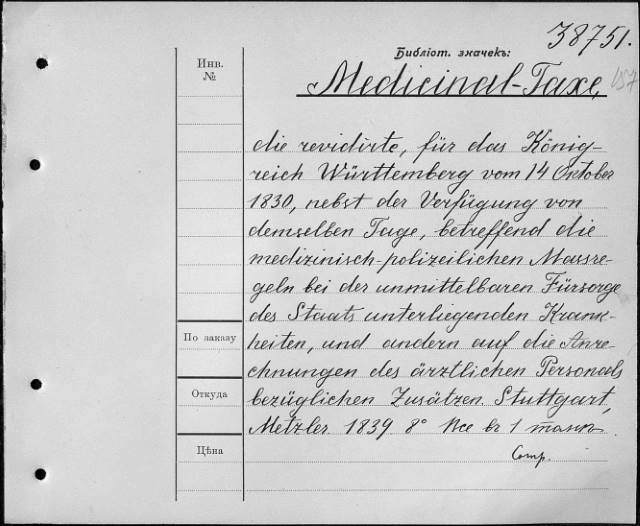 38751.
Библіот. значекъ:
157
Medicinal-Taxe,
Инв.
№
die revidirte, für das König-
reich Württemberg vom 14 Oktober
1830, nebst der Verfügung von
demselben Tage, betreffend die
medizinisch-polizeilichen Massre-
geln bei der unmittelbaren Fürsorge
des Staats unterliegenden Krank-
По заказу
heiten, und andern auf die Anre-
chnungen des ärztlichen Personals
Откуда
bezüglichen Zusätzen. Stuttgart,
Metzler 1839 8° Все въ 1 томѣ
Цѣна
Comp.